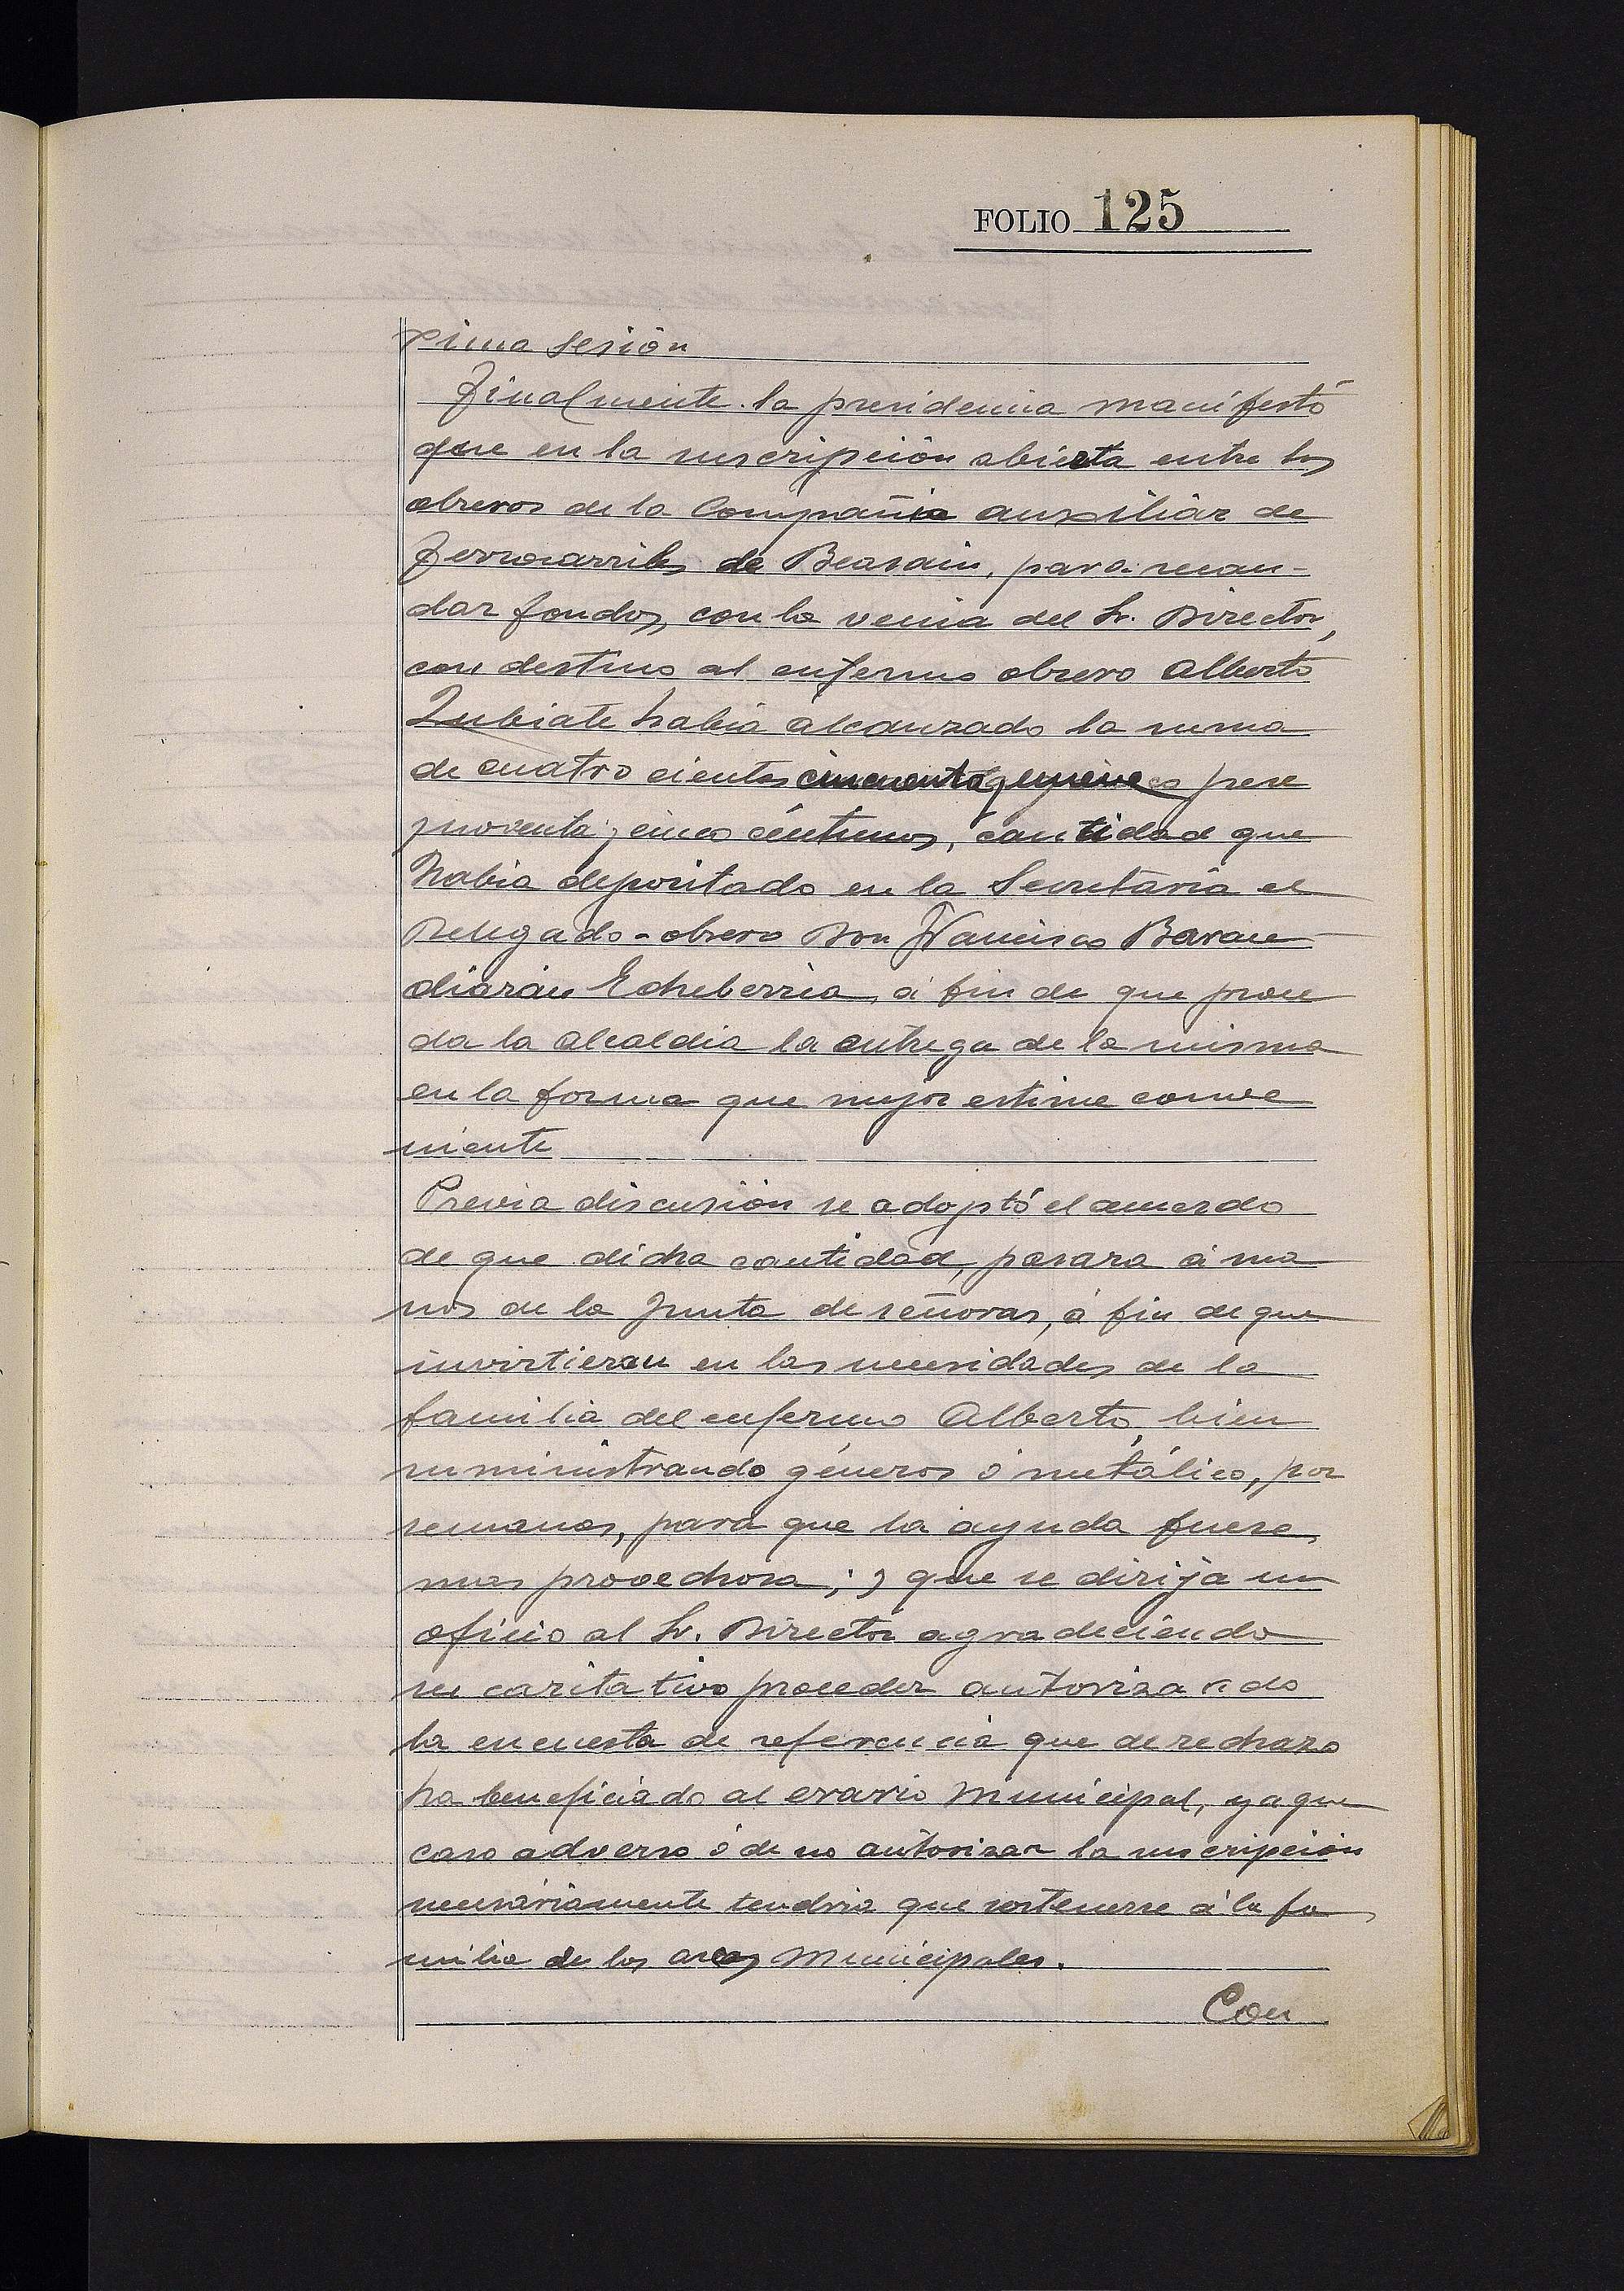 FOLIO 125
xima sesión
Finalmente la presidencia manifestó
que en la suscripción abierta entre los
obreros de la Compañia auxiliar de
Ferrocarriles de Beasain, para recau-
dar fondos, con la venia del Sr. Director,
con destino al enfermo obrero Alberto
Zubiate habia alcanzado la suma
de cuatro cientas cincuenta y nueve pese
y noventa y cinco céntimos, cantidad que
habia depositado en la Secretaria el
Delegado-obrero Don Francisco Baran
diarán Echeberria, á fin de que proce
da la alcaldia la entrega de la misma
en la forma que mejor estime conve
niente
Previa discusión se adoptó el acuerdo
de que dicha cantidad, pasara á ma
nos de la Junta de señoras, á fin de que
invirtieran en las necesidades de la
familia del enfermo Alberto, bien
suministrando géneros ó metálico, por
semanas, para que la ayuda fuese
mas provechosa; y que se dirija un
oficio al Sr. Director agradeciendo
su caritativo proceder autorizando
la encuesta de referencia que de rechazo
ha beneficiado al erario Municipal, ya que
caso adverso ó de no autorizar la suscripción
necesáriamente tendria que sostenerse á la fa
milia de las arcas Municipales.
Con